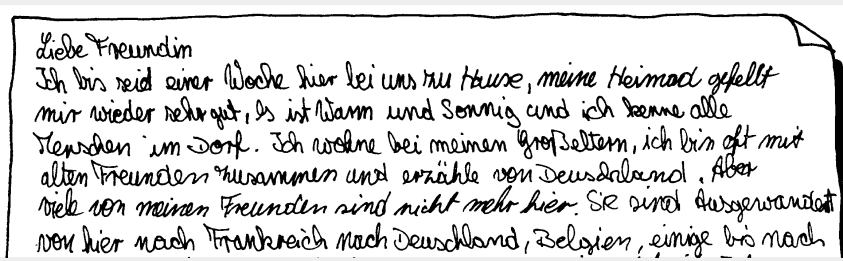 Liebe Freundin
Ich bis seid einer Woche hier bei uns zu Hause, meine Heimad gefellt
mir wieder sehr gut, Es ist Warm und Sonnig und ich kenne alle
Menschen im Dorf. Ich wohne bei meinen Großeltern, ich bin oft mit
alten Freunden zusammen und erzähle von Deuschland. Aber
viele von meinen Freunden sind nicht mehr hier. Sie sind Ausgewandert
von hier nach Frankreich nach Deuschland, Belgien, einige bis nach